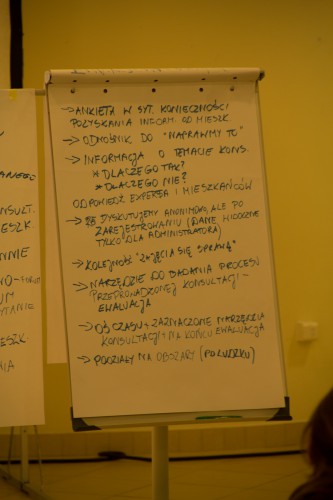 → ANKIETA W SYT. KONIECZNOŚCI
POZYSKANIA INFORM. OD MIESZK.
→ ODNOŚNIK DO "NAPRAWMY TO"
→ INFORMACJA O TEMACIE KONS.
* DLACZEGO TAK?
* DLACZEGO NIE?
ODPOWIEDŹ EXPERTA I MIESZKAŃCÓW
→ DYSKUTUJEMY ANONIMOWO, ALE PO
ZAREJESTROWANIU (DANE WIDOCZNE
TYLKO DLA ADMINISTRATORA)
→ KOLEJNOŚĆ "ZAJĘCIA SIĘ SPRAWĄ"
→ NARZĘDZIE DO BADANIA PROCESU
PRZEPROWADZONEJ KONSULTACJI –
EWALUACJA
→ OŚ CZASU + ZAZNACZONE NARZĘDZIA
KONSULTACJI + NA KOŃCU EWALUACJA
→ PODZIAŁY NA OBSZARY
ANEGO
NSULT.
ESZK.
WNIE
UM
PYTANIE
ESZK
NIA